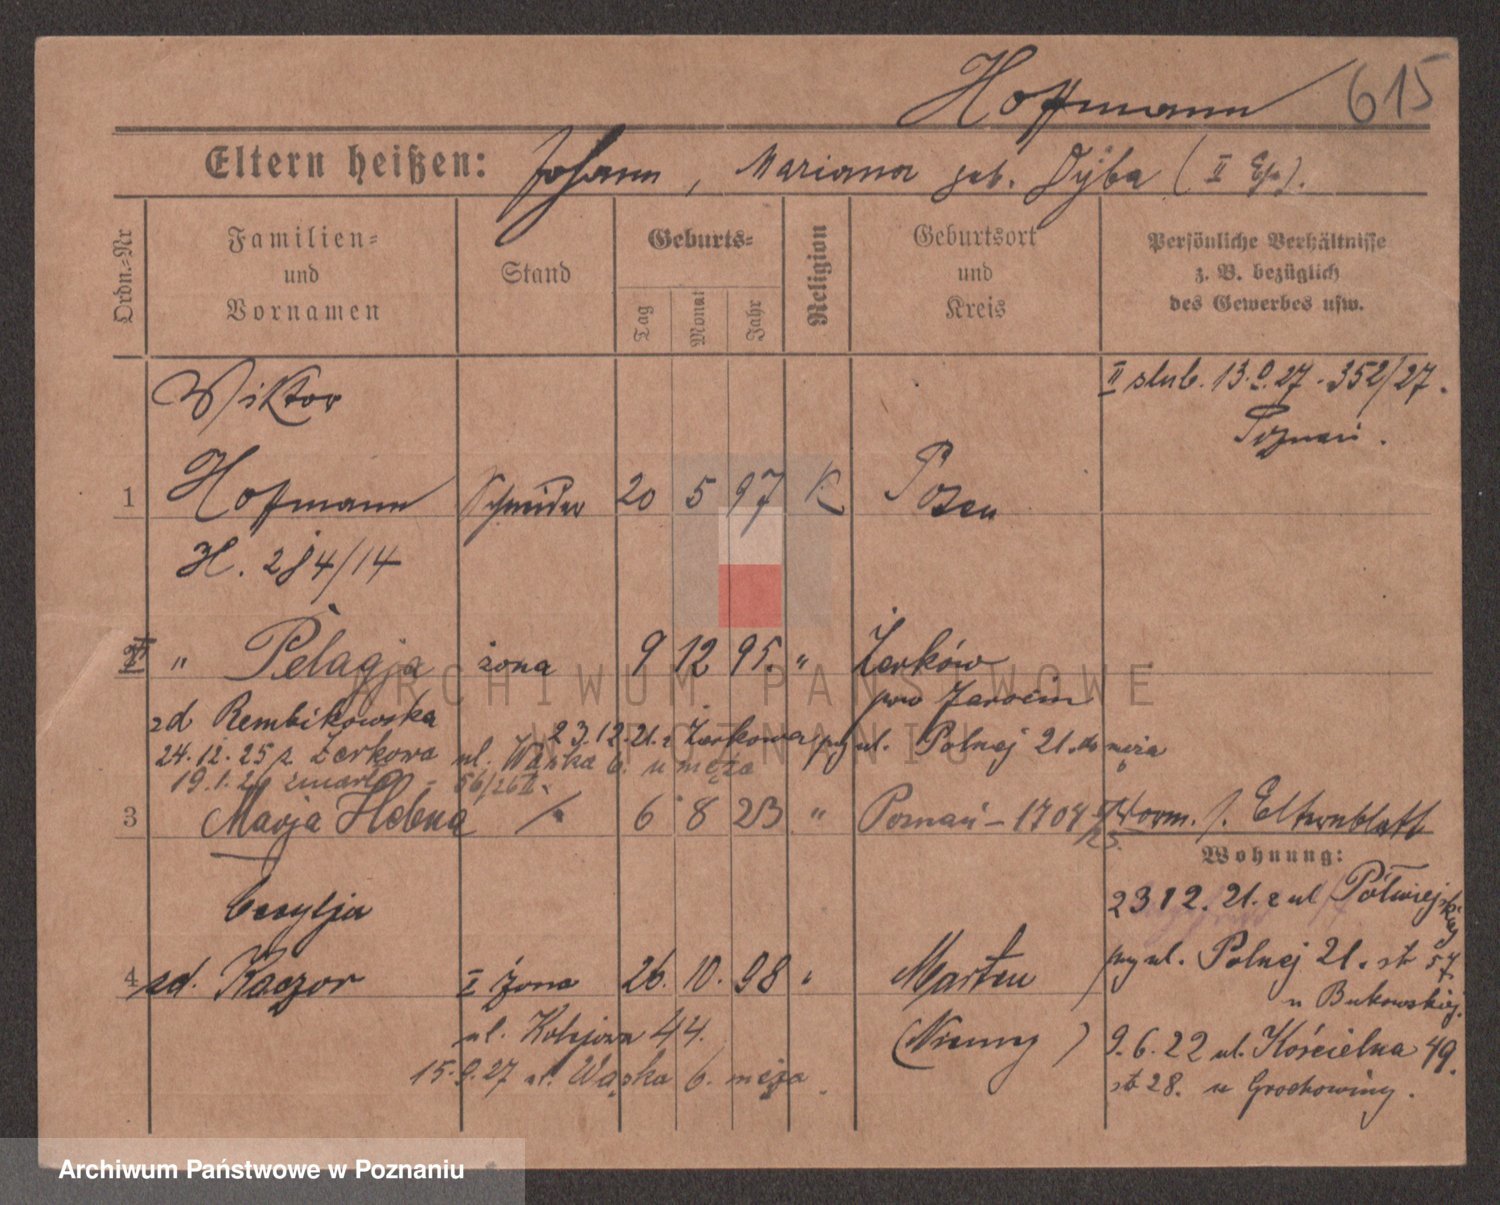 Hoffmann 615
Eltern heißen: Johann, Mariana geb. Dyba (II Ehe).
Ordn.-Nr
Familien- und Vornamen
Stand
Geburts-
Tag Monat Jahr
Religion
Geburtsort und Kreis
Persönliche Verhältnisse z. B. bezüglich des Gewerbes usw.
II slub. 13.9.27 - 352/27.
Poznań.
Wiktor
1 Hoffmann Schneider 20 5 97 K Posen
H. 284/14
2 " Pelagja żona 9 12 95. " Żerków
pow Jarocin
zd Rembikowska
23.12.21. z Żerkowa przy ul. Polnej 21. do męża
24.12.25 z Żerkowa ul. Wąska 6. u męża
19.1.26 zmarła - 56/26 II.
3 Marja Helena 6 8 23 " Poznań - 1704 Worm. s. Elternblatt
Wohnung:
23 12. 21. z ul Półwiejskiej
Cecylja
4 zd. Kaczor II żona 26. 10. 98 " Marten
przy ul. Polnej 21. st 57.
u Bukowskiej.
ul. Kolejowa 44. (Niemcy)
9.6.22 ul. Kościelna 49.
15.9.27 ul. Wąska 6. męża.
st 28. u Grochowiny.
ARCHIWUM PAŃSTWOWE
W POZNANIU
Archiwum Państwowe w Poznaniu